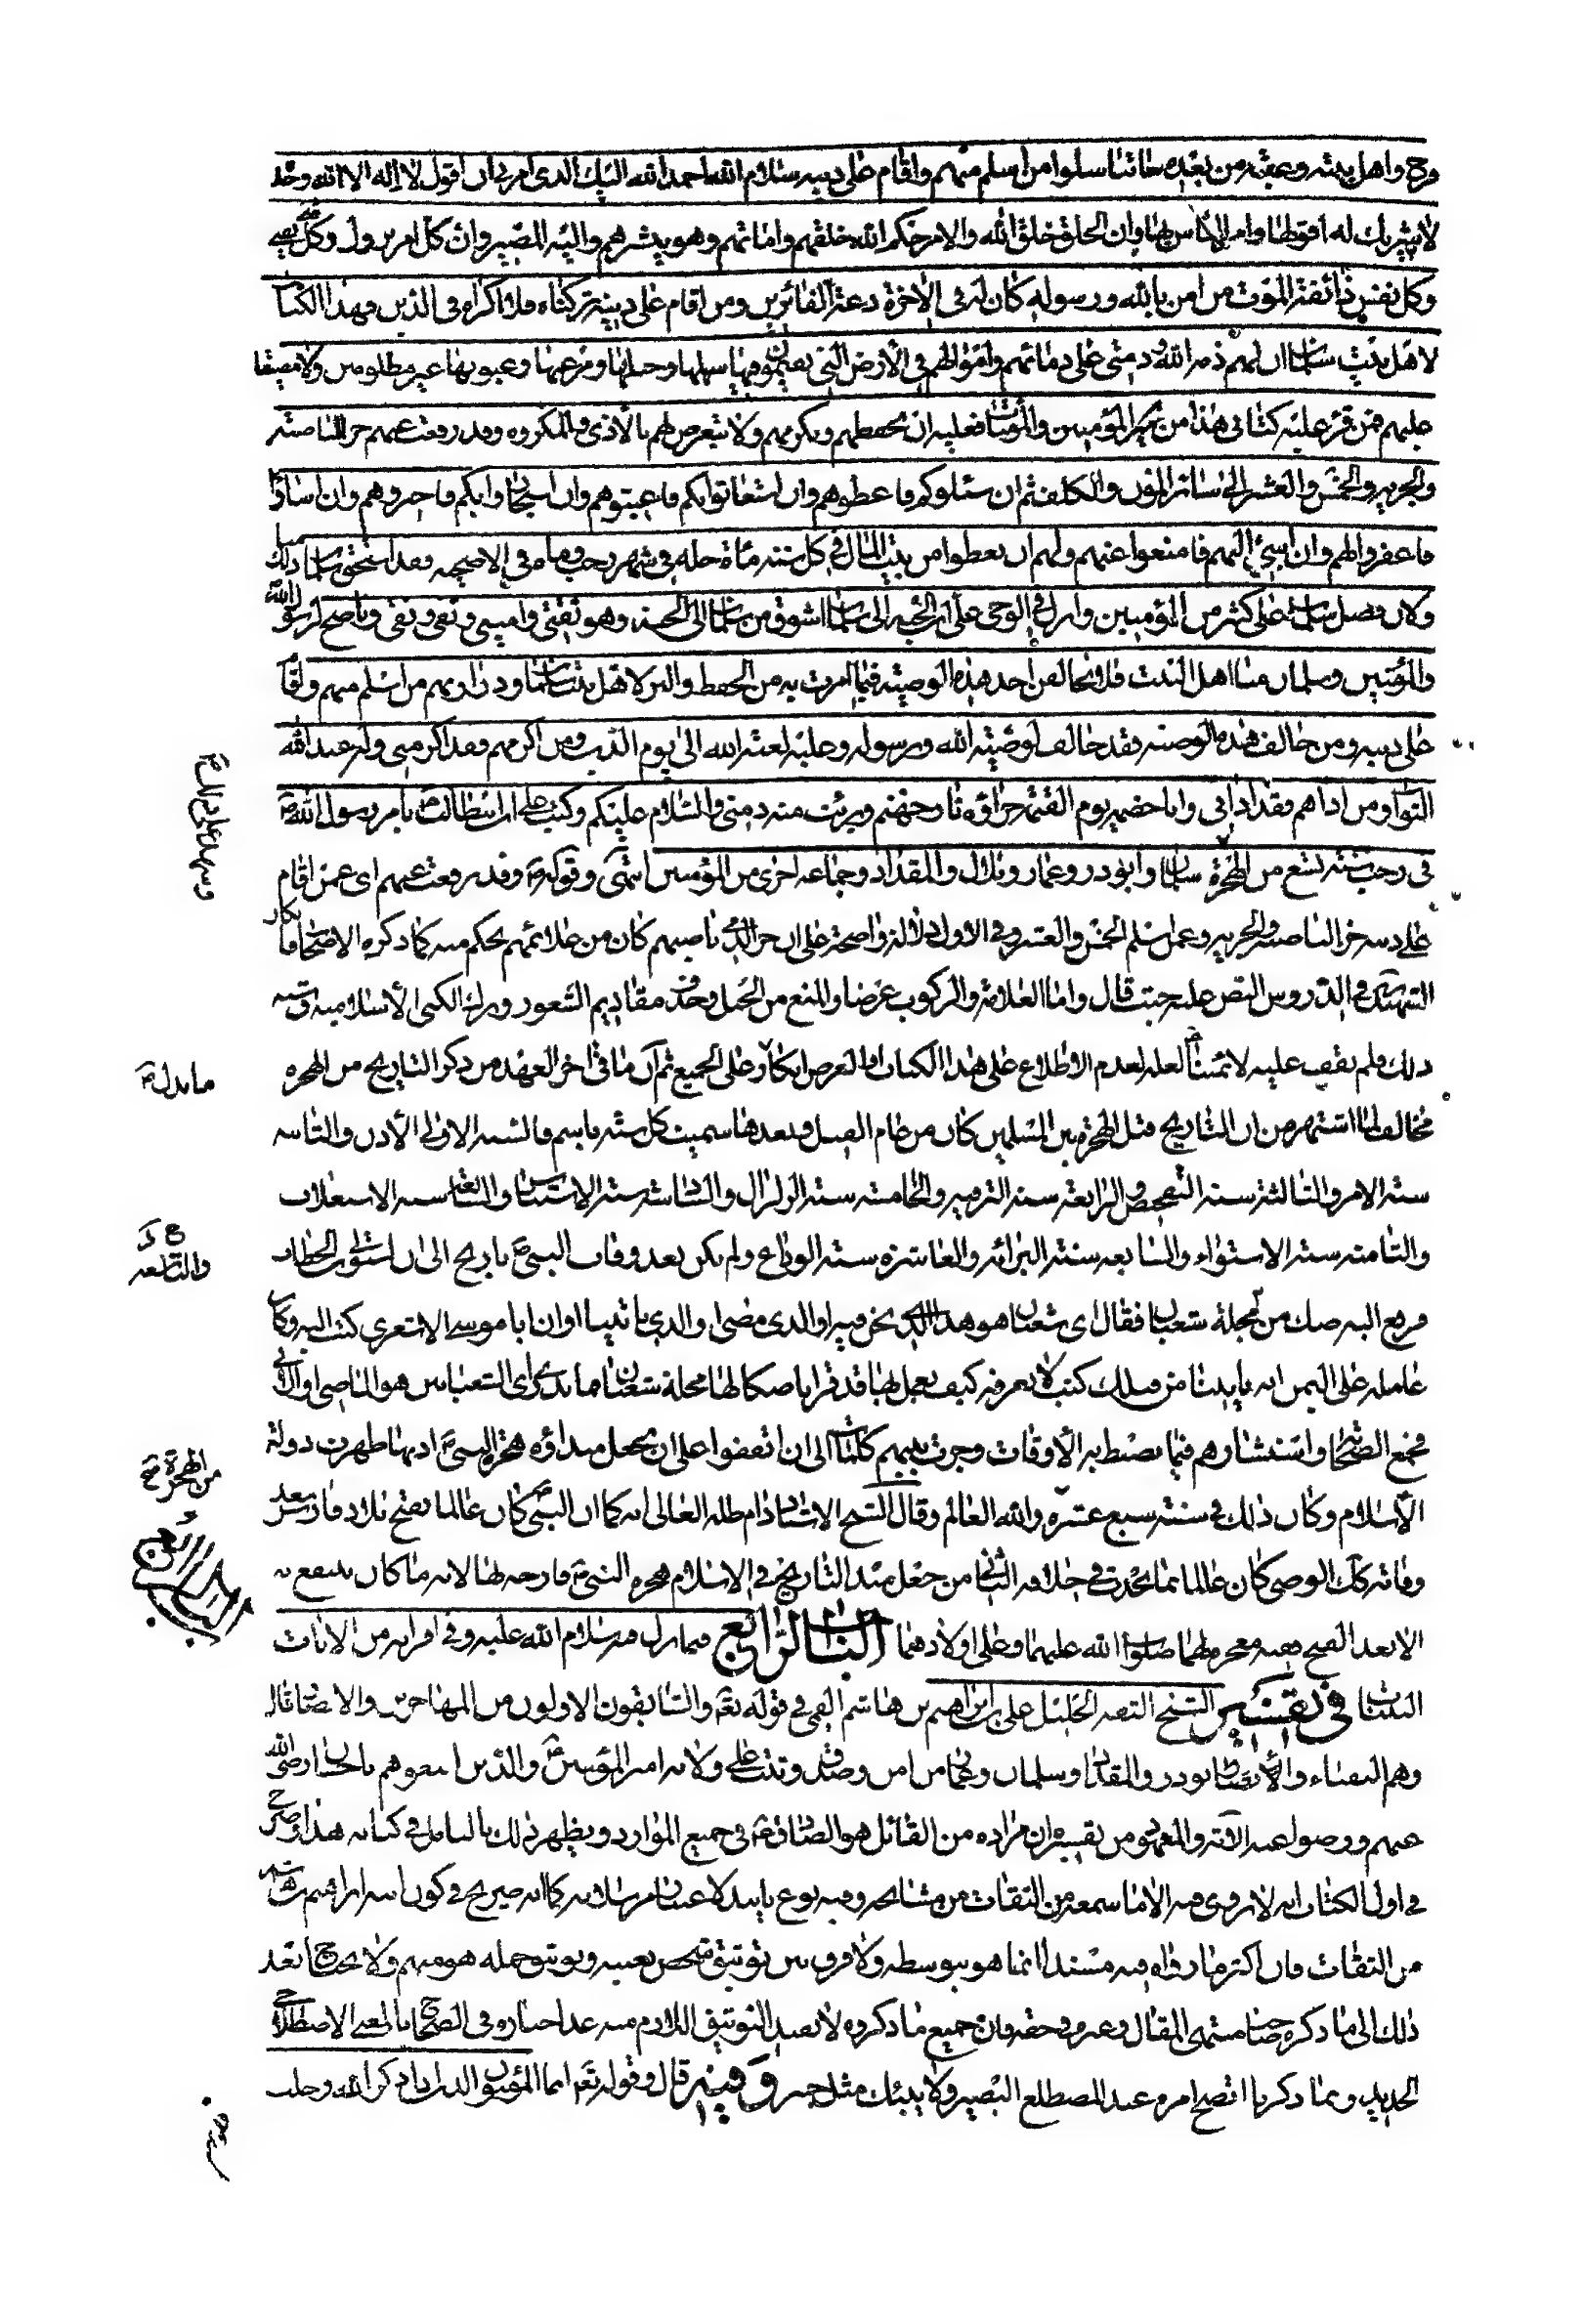 فرخ واهل بيته وعقبه من بعده ما تناسلوا من اسلم منهم واقام على دينه سلام الله احمد الله اليك الذي امرني ان اقول لا اله الا الله وحده
لا شريك له اقولها وامر الناس بها وان الخلق خلق الله والامر كله لله خلقهم واماتهم وهو ينشرهم واليه المصير وان كل امر يزول وكل شيء
وكل نفس ذائقة الموت من امن بالله ورسوله كان له في الاخرة دعة الفائزين ومن اقام على دينه تركناه فلا اكراه في الدين فهذا الكتاب
لاهل بيت سلمان ان لهم ذمة الله وذمتي على دمائهم واموالهم في الارض التي يقيمون فيها سهلها وجبلها ومرعيها وعيونها غير مظلومين ولا مضيقا
عليهم فمن قرئ عليه كتابي هذا من المؤمنين والمؤمنات فعليه ان يحفظهم ويكرمهم ولا يتعرض لهم بالاذى والمكروه وقد رفعت عنهم جز الناصية
والجزية والخمس والعشر الى سائر المؤن والكلف ثم ان سئلوكم فاعطوهم وان استغاثوا بكم فاغيثوهم وان استجاروا بكم فاجيروهم وان اساؤا
فاغفروا لهم وان اسيئ اليهم فامنعوا عنهم ولهم ان يعطوا من بيت المال في كل سنة مأة حلة في شهر رجب ومأة في الاضحية فقد استحق سلمان ذلك
ولان فضل سلمان على كثير من المؤمنين وانزل في الوحي علي ان الجنة الى سلمان اشوق من سلمان الى الجنة وهو ثقتي واميني وتقي ونقي وناصح لرسول الله
والمؤمنين وسلمان منا اهل البيت فلا يخالفن احد هذه الوصية فيما امرت به من الحفظ والبر لاهل بيت سلمان وذراريهم من اسلم منهم واقام
على دينه ومن خالف هذه الوصية فقد خالف لوصية الله ورسوله وعليه لعنة الله الى يوم الدين ومن اكرمهم فقد اكرمني وله عند الله
الثواب ومن اذاهم فقد اذاني وانا خصمه يوم القيمة جزاؤه نار جهنم وبرئت منه ذمتي والسلام عليكم وكتب علي ابن ابيطالب بامر رسول الله
في رجب سنة تسع من الهجرة سلمان وابوذر وعمار وبلال والمقداد وجماعة اخرى من المؤمنين انتهى وقوله وقد رفعت عنهم اي عمن اقام
على دينه جز الناصية والجزية وعمن اسلم الخمس والعشر وفي الاول دلالة واضحة على ان جز الذمي ناصيتهم كان من علائمهم يحكم منه كما ذكره الاصحاب فانكار
الشهيد في الدروس النص عليه حيث قال واما العلامة والركوب عرضا والمنع من الخيل وحذف مقاديم الشعور وترك الكنى الاسلامية وشبه
ذلك فلم نقف عليه لائمتنا لعله لعدم الاطلاع على هذا الكتاب او لغرض انكاره على الجميع ثم ان ما في اخر العهد من ذكر التاريخ من الهجرة
مخالف لما اشتهر من ان التاريخ قبل الهجرة بين المسلمين كان من عام الفيل وبعدها سميت كل سنة باسم فالسنة الاولى الاذن والثانية
سنة الامر والثالثة سنة التمحيص والرابعة سنة الترفيه والخامسة سنة الزلزال والسادسة سنة الاستيناس والسابعة سنة الاستغلاب
والثامنة سنة الاستواء والسابعة سنة البرائة والعاشرة سنة الوداع ولم يكن بعد وفات النبي تاريخ الى ان استولى ابن الخطاب
فرفع اليه صك من محله شعبان فقال اي شعبان هو هذا الذي نحن فيه او الذي مضى او الذي ياتينا او ان ابا موسى الاشعري كتب اليه وكان
عامله على اليمن انه ياتينا من قبلك كتب لا يعرف كيف يعمل بها قد قرانا صكا لها محله شعبان فما ندري اي الشعبانين هو الماضي او الاتي
فجمع الصحابة واستشارهم فيما يضبط به الاوقات وجرت بينهم كلمات الى ان اتفقوا على ان يجعل مبداؤه هجرة النبي اذ بها ظهرت دولة
الاسلام وكان ذلك في سنة سبع عشرة والله العالم وقال الشيخ الاستاد دام ظله العالي انه كما ان النبي كان عالما بفتح بلاد فارس بعد
وفاته كك الوصي كان عالما بما يحدث في خلافة الثاني من جعل مبدء التاريخ في الاسلام هجرة النبي فارخه لها لانه ما كان ينتفع به
الا بعد الفتح ففيه معجزة لهما صلوات الله عليهما وعلى اولادهما الباب الرابع فيما نزل فيه سلام الله عليه وفي اقرانه من الايات
البينات في تفسير الشيخ الثقة الجليل علي بن ابراهيم بن هاشم القمي في قوله تع والسابقون الاولون من المهاجرين والانصار قال
وهم النقباء والانصار ابوذر والمقداد وسلمان وعمار ومن امن وصدق وثبت على ولاية امير المؤمنين والذين اتبعوهم باحسان رضي الله
عنهم ورضوا عنه الاية والمعهود من تفسيره ان مراده من القائل هو الصادق في جميع الموارد ويظهر ذلك بالتامل في كتابه هذا وصرح
في اول الكتاب انه لا يروي فيه الا ما سمعه من الثقات من مشايخه وفيه نوع تاييد لاعتبار مرسلاته كما انه صريح في كون ابيه ابراهيم بن هاشم
من الثقات فان اكثر ما رواه فيه مسندا انما هو بتوسطه ولا فرق بين توثيق شخص بعينه وتوثيق جملة هو منهم ولا يحتاج بعد
ذلك الى ما ذكره صاحب منتهى المقال وغيره في حقه فان جميع ما ذكروه لا يفيد التوثيق اللازم منه عد اخباره في الصحاح بالمعنى الاصطلاحي
الجديد وبما ذكرنا اتضح امره عند المصطلع البصير ولا ينبئك مثل خبير وفيه قال وقوله تع انما المؤمنون الذين اذا ذكر الله وجلت
والتاسعة
من الهجرة خ
الباب الرابع